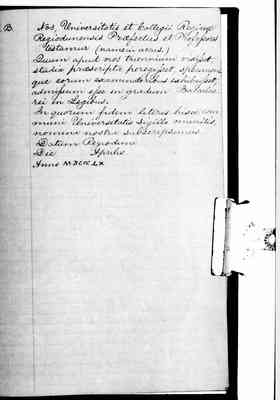 B. Nos, Universitatis et Collegii Reginæ
Regiodunensis Præfectus et Professores
testamur (nomen acus.)
Quum apud nos triennium
studia præscripta peregisset,
que eorum examinatoribus exhibuisset,
admissum esse in gradum Baccalau-
rei in Legibus.
In quorum fidem literis hisce com
muni Universitatis Sigillo munitis,
nomina nostra subscripsimus.
Datum Regioduni
Die Aprilis
Anno MDCCCLX